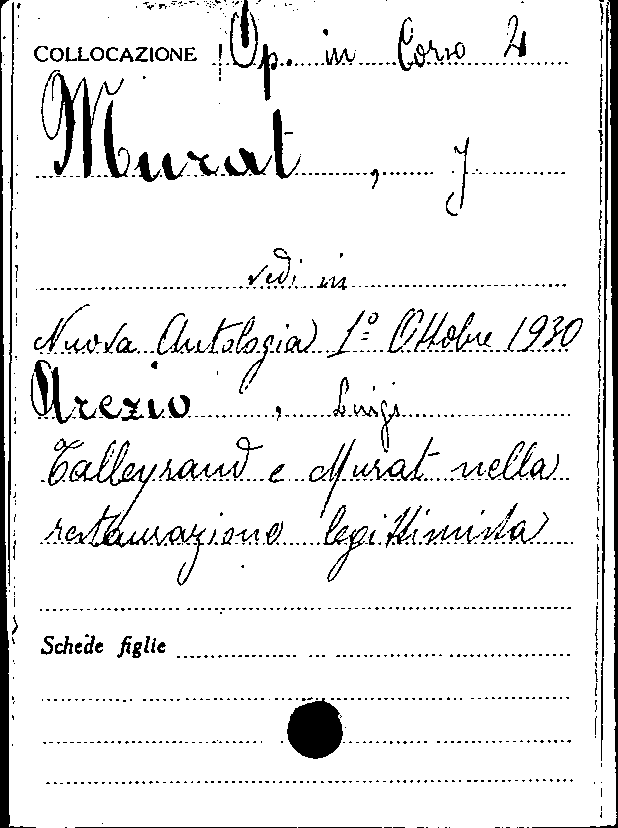 COLLOCAZIONE Op. in Corso 24
Murat, J
vedi in
Nuova Antologia 1º Ottobre 1930
Arezio, Luigi
Talleyrand e Murat nella
restaurazione legittimista
Schede figlie